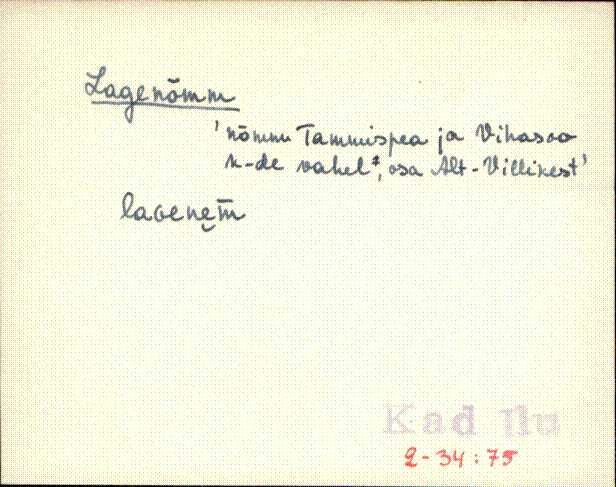 Lagenõmm
'nõmm Tammispea ja Vihasoo
k-de vahel, osa Alt-Villikest'
Kad Ilu
2-34:75